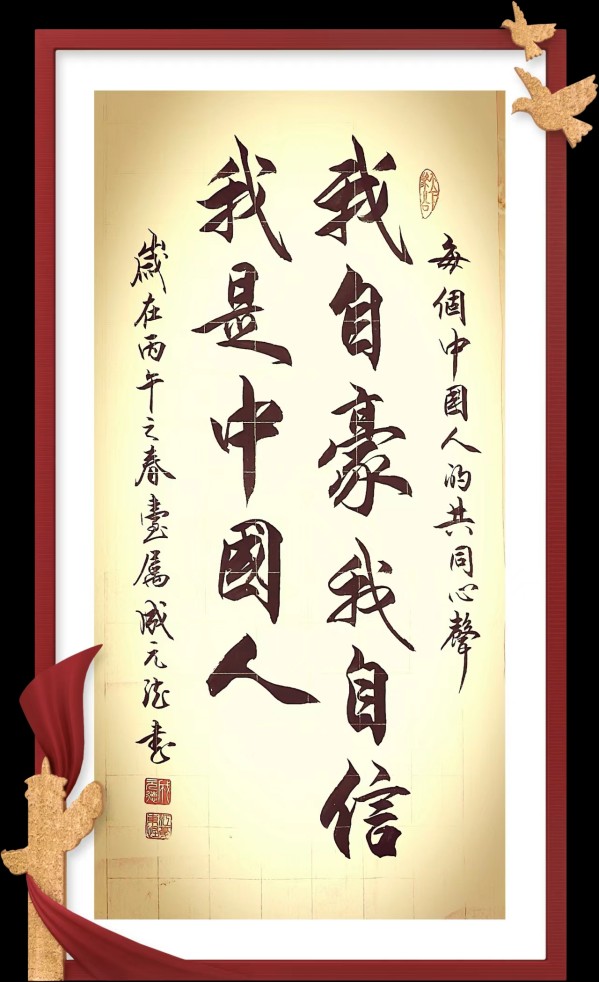 每個中國人的共同心聲
我自豪我自信
我是中國人
歲在丙午之春臺屬成元德書